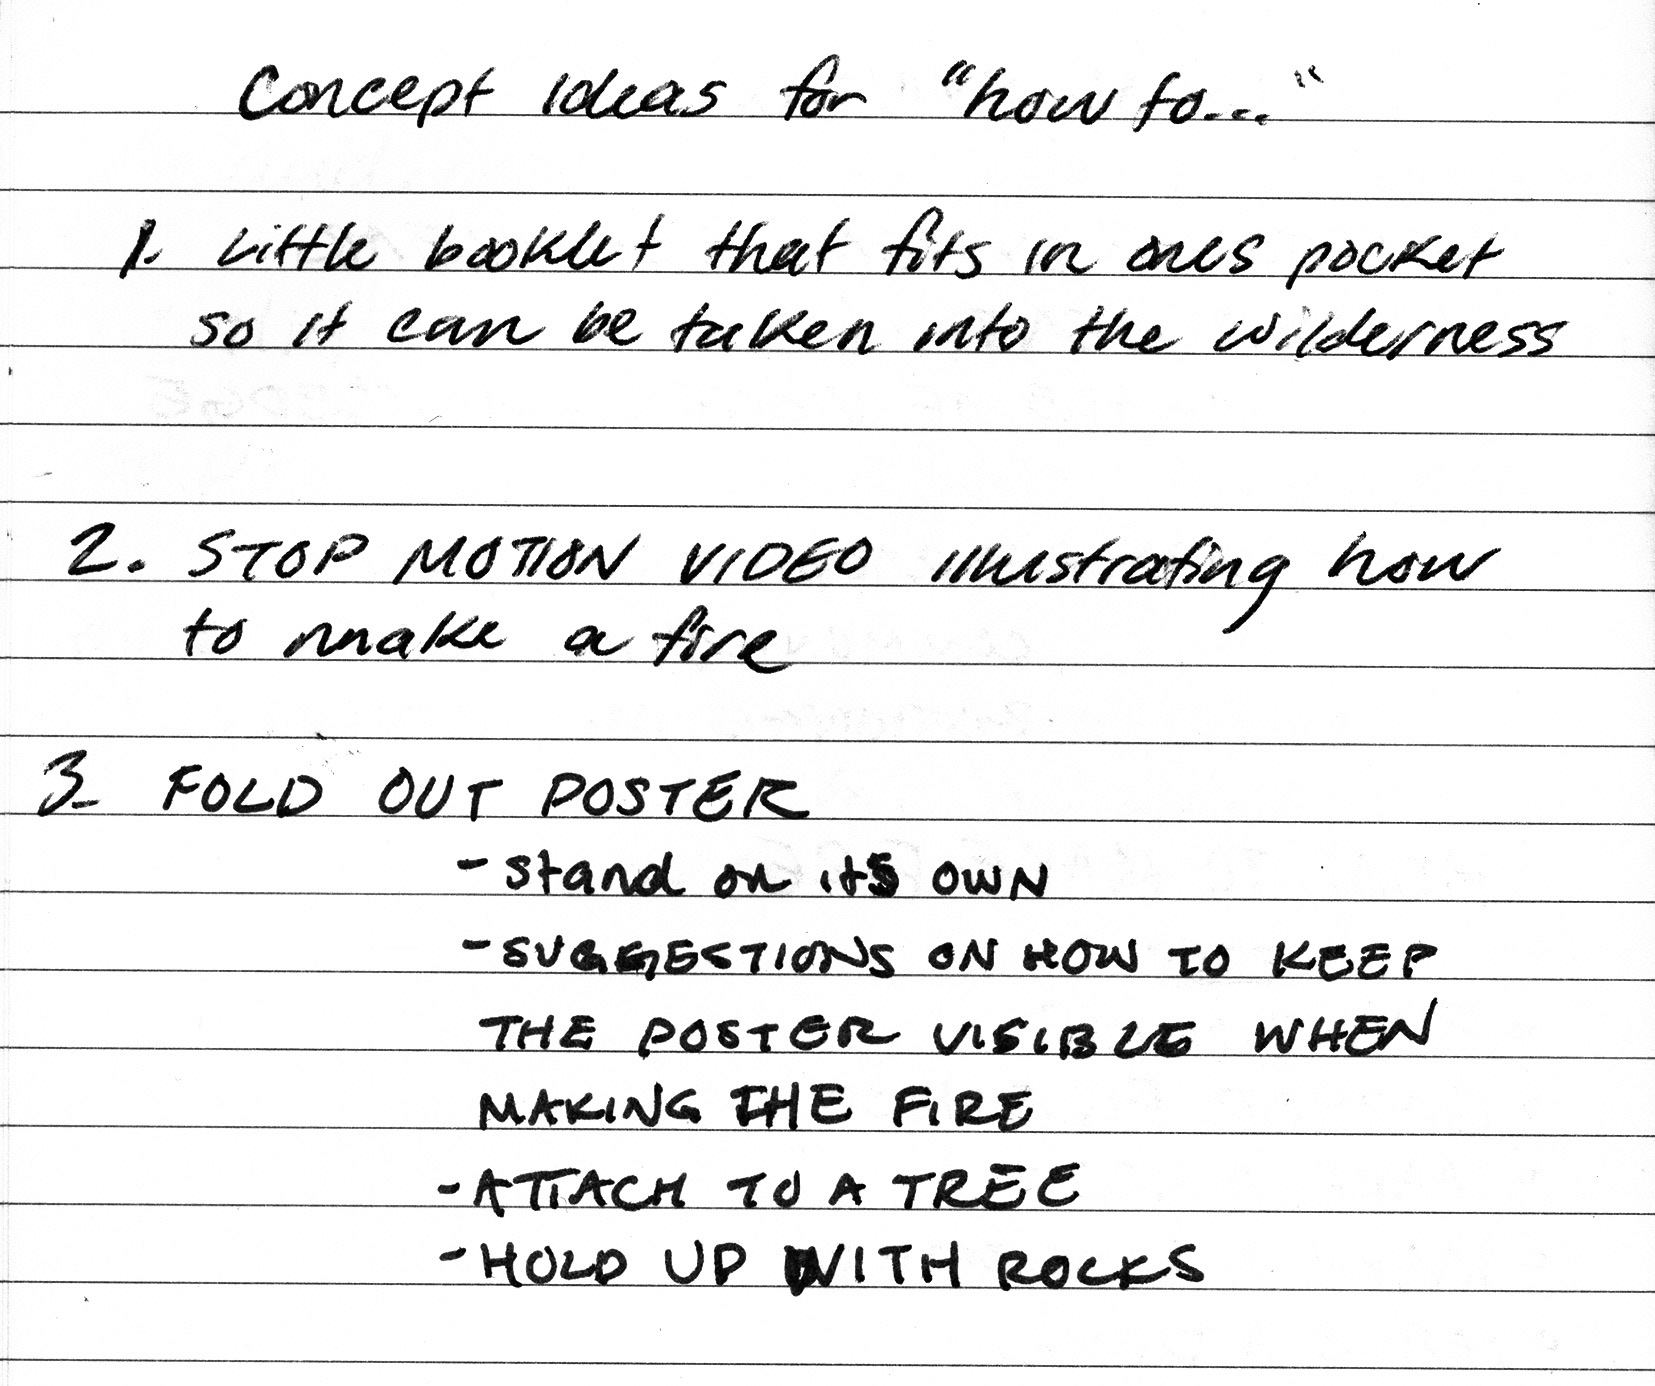 Concept Ideas for "how to..."
1. Little booklet that fits in ones pocket
so it can be taken into the wilderness
2. STOP MOTION VIDEO illustrating how
to make a fire
3. FOLD OUT POSTER
- Stand on its OWN
- SUGGESTIONS ON HOW TO KEEP
THE POSTER VISIBLE WHEN
MAKING THE FIRE
- ATTACH TO A TREE
- HOLD UP WITH ROCKS